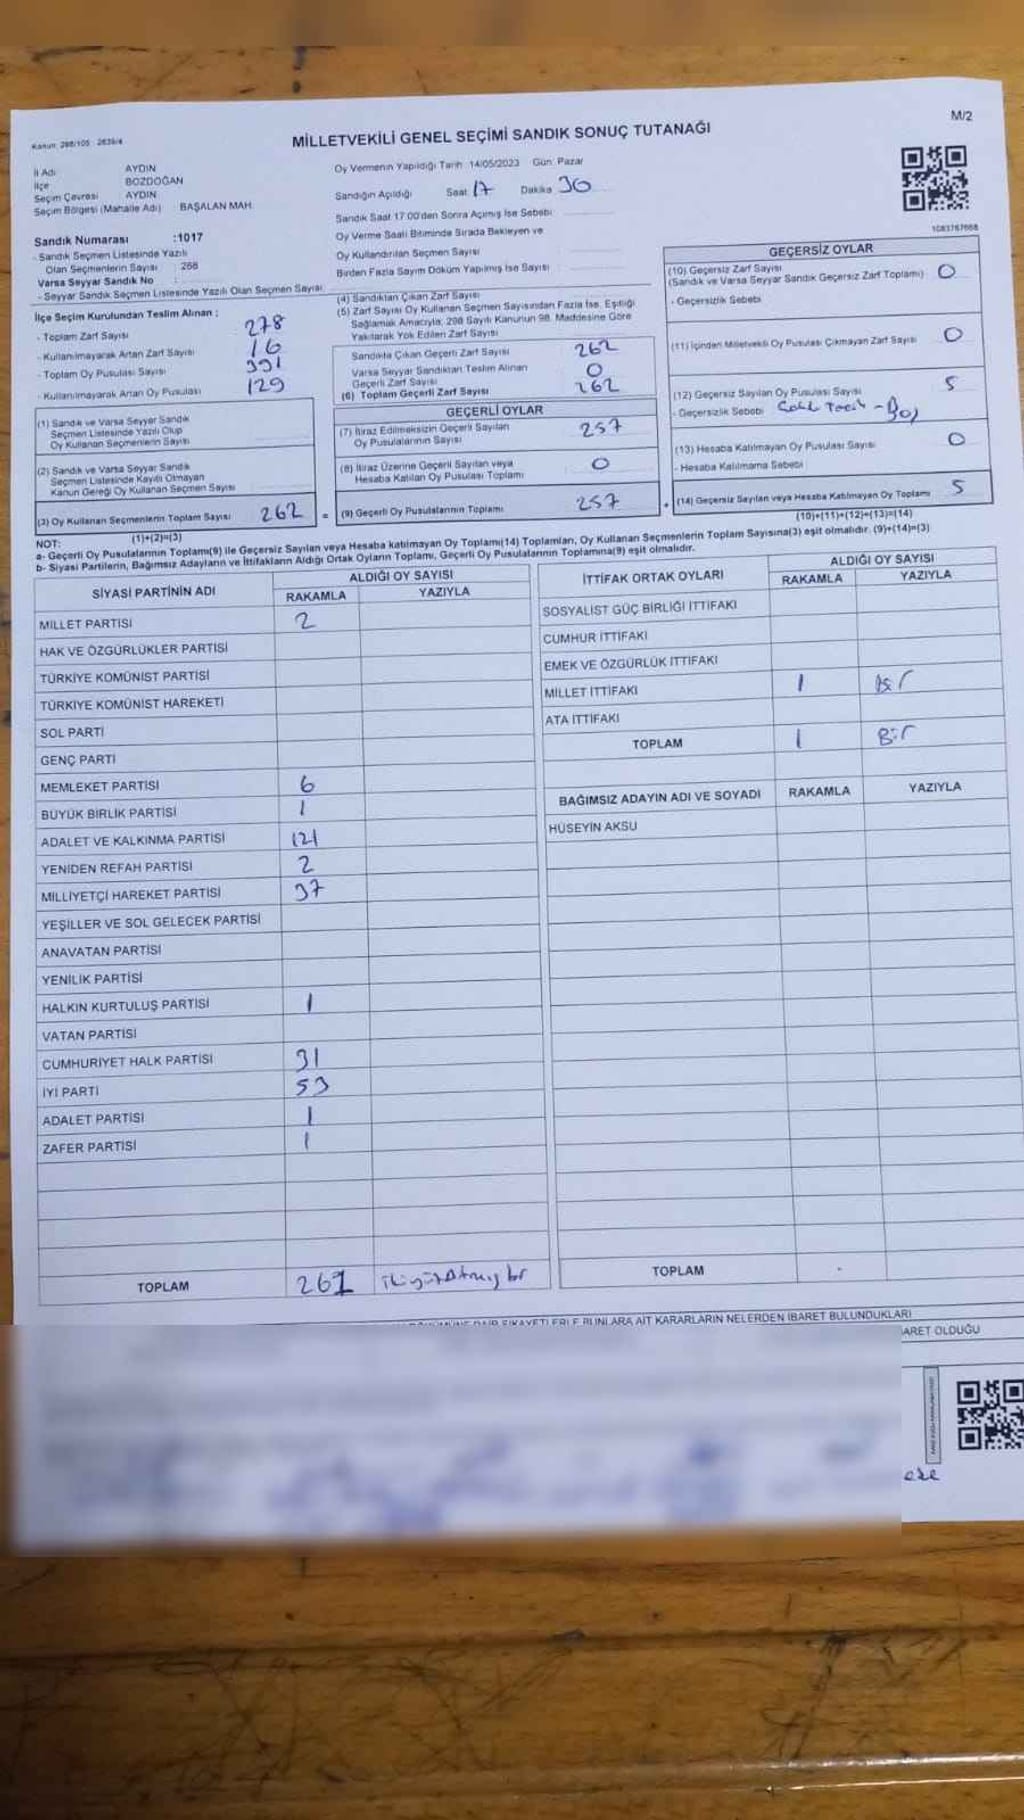 M/2
Kanun: 298/105 2839/4
MİLLETVEKİLİ GENEL SEÇİMİ SANDIK SONUÇ TUTANAĞI
İl Adı AYDIN
İlçe BOZDOĞAN
Seçim Çevresi AYDIN
Seçim Bölgesi (Mahalle Adı) BAŞALAN MAH.
Sandık Numarası :1017
- Sandık Seçmen Listesinde Yazılı
Olan Seçmenlerin Sayısı : 268
Varsa Seyyar Sandık No :
- Seyyar Sandık Seçmen Listesinde Yazılı Olan Seçmen Sayısı
Oy Vermenin Yapıldığı Tarih 14/05/2023 Gün: Pazar
Sandığın Açıldığı Saat 17 Dakika 30
Sandık Saat 17:00'den Sonra Açılmış İse Sebebi
Oy Verme Saati Bitiminde Sırada Bekleyen ve
Oy Kullandırılan Seçmen Sayısı
Birden Fazla Sayım Döküm Yapılmış İse Sayısı
1083767668
İlçe Seçim Kurulundan Teslim Alınan :
- Toplam Zarf Sayısı 278
- Kullanılmayarak Artan Zarf Sayısı 16
- Toplam Oy Pusulası Sayısı 391
- Kullanılmayarak Artan Oy Pusulası 129
(1) Sandık ve Varsa Seyyar Sandık
Seçmen Listesinde Yazılı Olup
Oy Kullanan Seçmenlerin Sayısı
(2) Sandık ve Varsa Seyyar Sandık
Seçmen Listesinde Kayıtlı Olmayan
Kanun Gereği Oy Kullanan Seçmen Sayısı
(3) Oy Kullanan Seçmenlerin Toplam Sayısı 262 =
(1)+(2)=(3)
(4) Sandıktan Çıkan Zarf Sayısı
(5) Zarf Sayısı Oy Kullanan Seçmen Sayısından Fazla İse, Eşitliği
Sağlamak Amacıyla; 298 Sayılı Kanunun 98. Maddesine Göre
Yakılarak Yok Edilen Zarf Sayısı
Sandıkta Çıkan Geçerli Zarf Sayısı 262
Varsa Seyyar Sandıktan Teslim Alınan
Geçerli Zarf Sayısı 0
(6) Toplam Geçerli Zarf Sayısı 262
GEÇERLİ OYLAR
(7) İtiraz Edilmeksizin Geçerli Sayılan
Oy Pusulalarının Sayısı 257
(8) İtiraz Üzerine Geçerli Sayılan veya
Hesaba Katılan Oy Pusulası Toplamı 0
(9) Geçerli Oy Pusulalarının Toplamı 257 +
GEÇERSİZ OYLAR
(10) Geçersiz Zarf Sayısı
(Sandık ve Varsa Seyyar Sandık Geçersiz Zarf Toplamı) 0
- Geçersizlik Sebebi
(11) İçinden Milletvekili Oy Pusulası Çıkmayan Zarf Sayısı 0
(12) Geçersiz Sayılan Oy Pusulası Sayısı 5
- Geçersizlik Sebebi
(13) Hesaba Katılmayan Oy Pusulası Sayısı 0
- Hesaba Katılmama Sebebi
(14) Geçersiz Sayılan veya Hesaba Katılmayan Oy Toplamı 5
(10)+(11)+(12)+(13)=(14)
NOT:
a- Geçerli Oy Pusulalarının Toplamı(9) ile Geçersiz Sayılan veya Hesaba katılmayan Oy Toplamı(14) Toplamları, Oy Kullanan Seçmenlerin Toplam Sayısına(3) eşit olmalıdır. (9)+(14)=(3)
b- Siyasi Partilerin, Bağımsız Adayların ve İttifakların Aldığı Ortak Oyların Toplamı, Geçerli Oy Pusulalarının Toplamına(9) eşit olmalıdır.
SİYASİ PARTİNİN ADI ALDIĞI OY SAYISI
RAKAMLA YAZIYLA
MİLLET PARTİSİ 2
HAK VE ÖZGÜRLÜKLER PARTİSİ
TÜRKİYE KOMÜNİST PARTİSİ
TÜRKİYE KOMÜNİST HAREKETİ
SOL PARTİ
GENÇ PARTİ
MEMLEKET PARTİSİ 6
BÜYÜK BİRLİK PARTİSİ 1
ADALET VE KALKINMA PARTİSİ 121
YENİDEN REFAH PARTİSİ 2
MİLLİYETÇİ HAREKET PARTİSİ 37
YEŞİLLER VE SOL GELECEK PARTİSİ
ANAVATAN PARTİSİ
YENİLİK PARTİSİ
HALKIN KURTULUŞ PARTİSİ 1
VATAN PARTİSİ
CUMHURİYET HALK PARTİSİ 31
İYİ PARTİ 53
ADALET PARTİSİ 1
ZAFER PARTİSİ 1
TOPLAM 261
İTTİFAK ORTAK OYLARI ALDIĞI OY SAYISI
RAKAMLA YAZIYLA
SOSYALİST GÜÇ BİRLİĞİ İTTİFAKI
CUMHUR İTTİFAKI
EMEK VE ÖZGÜRLÜK İTTİFAKI
MİLLET İTTİFAKI 1 Bir
ATA İTTİFAKI
TOPLAM 1 Bir
BAĞIMSIZ ADAYIN ADI VE SOYADI RAKAMLA YAZIYLA
HÜSEYİN AKSU
TOPLAM
ŞİKAYETLERLE BUNLARA AİT KARARLARIN NELERDEN İBARET BULUNDUKLARI
ARET OLDUĞU